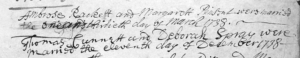 Ambrose Rackett and Margarett Picket were married
the one and thirtieth day of March 1778.
Thomas Lunnett and Deborah Spray were
married the eleventh day of December 1778.